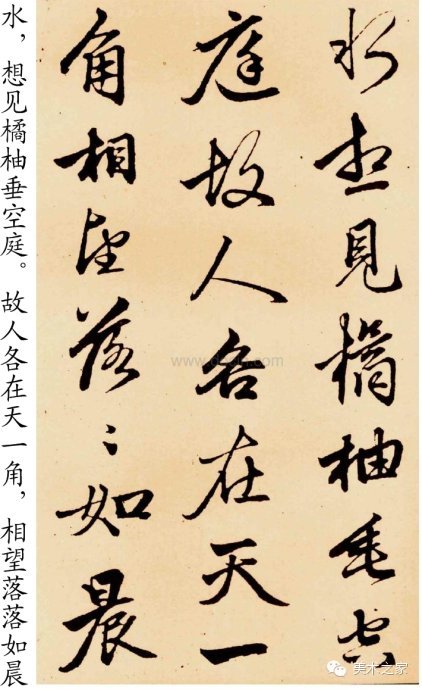 水想見橘柚垂空
庭故人各在天一
角相望落〻如晨
水，想见橘柚垂空庭。故人各在天一角，相望落落如晨
美术之家